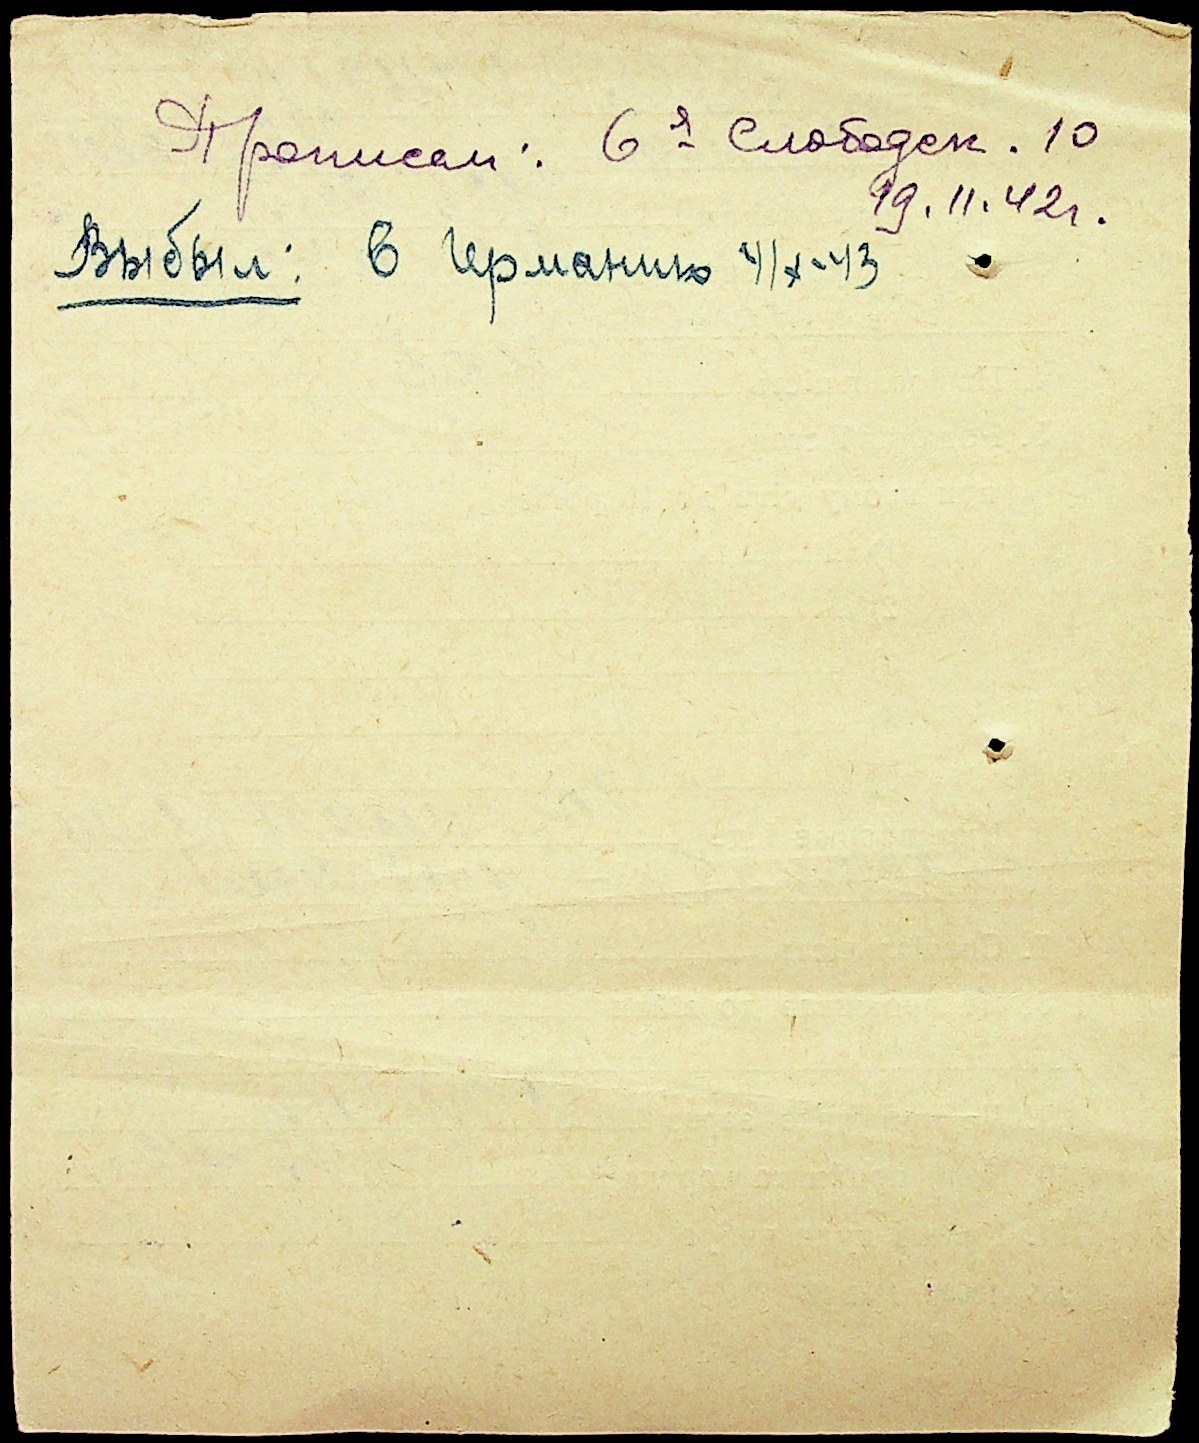 Прописан: 6я Слободск. 10
19.11.42г.
Выбыл: в Германию 4/x-43